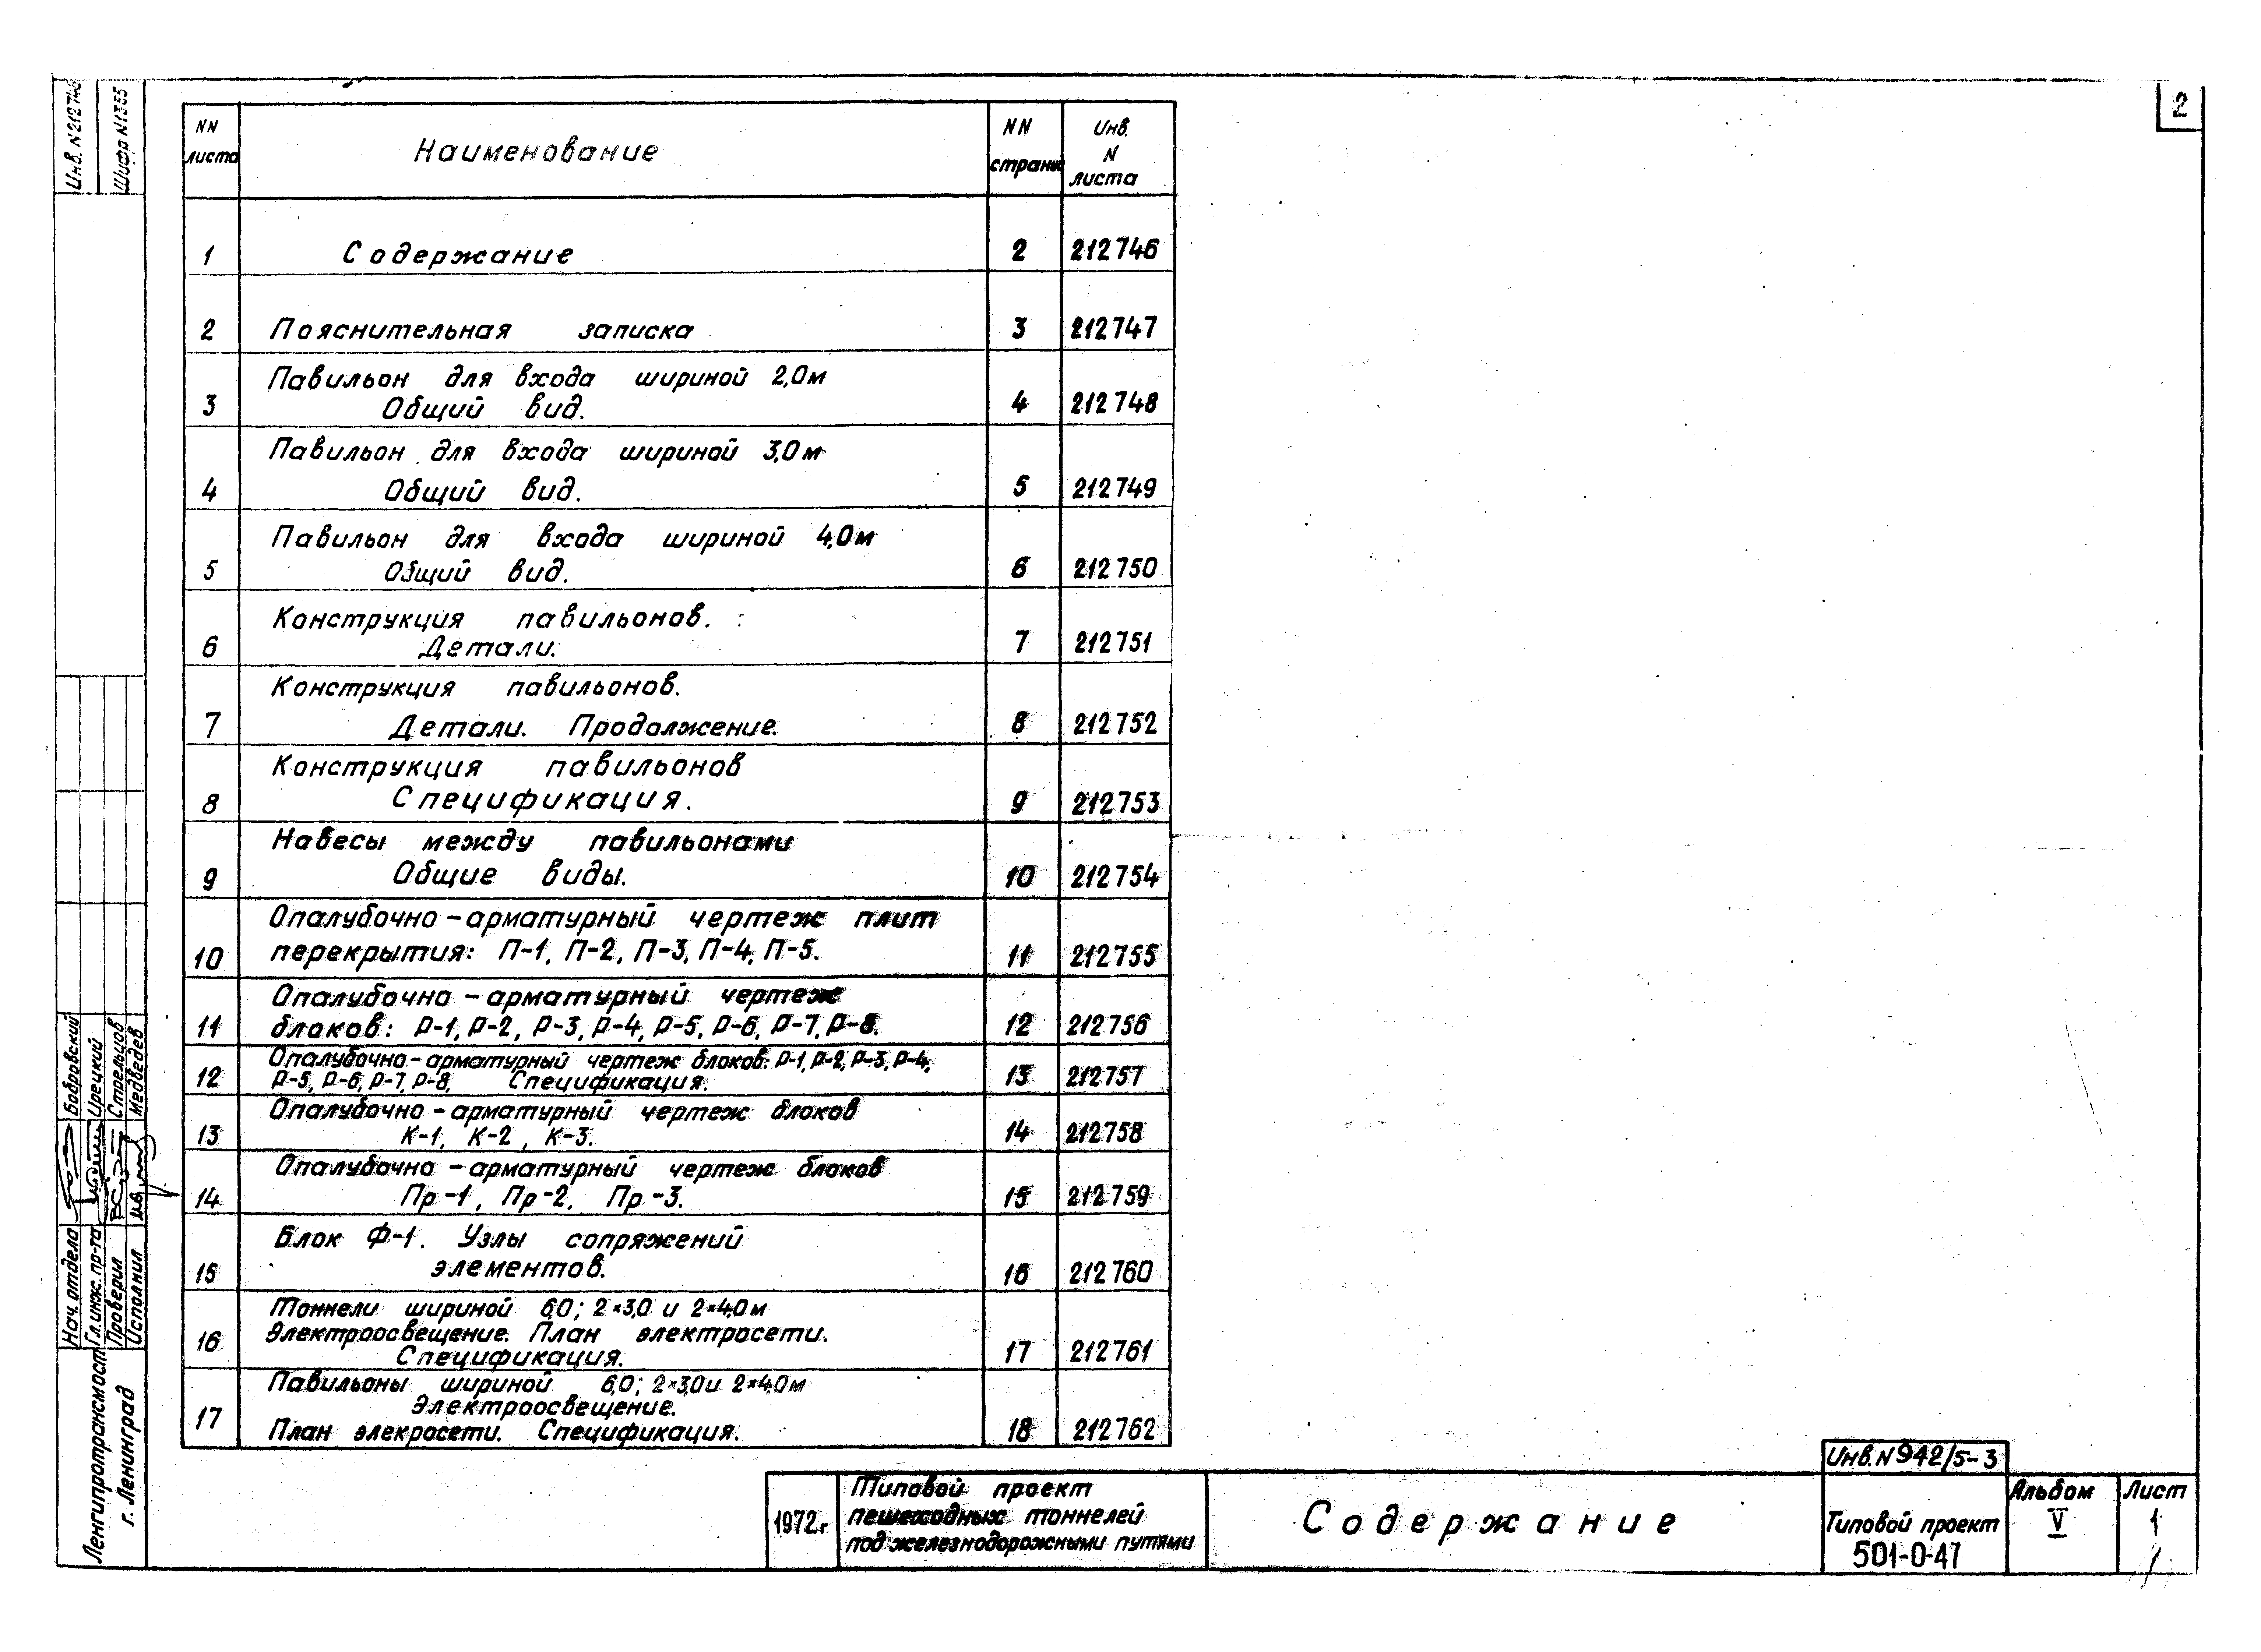 2
Инв. N 212746
Шифр N1355
NN листа
Наименование
NN страниц
Инв. N листа
1 Содержание 2 212746
2 Пояснительная записка 3 212747
Павильон для входа шириной 2,0м
3 Общий вид. 4 212748
Павильон для входа шириной 3,0м
4 Общий вид. 5 212749
Павильон для входа шириной 4,0м
5 Общий вид. 6 212750
Конструкция павильонов.
6 Детали. 7 212751
Конструкция павильонов.
7 Детали. Продолжение. 8 212752
Конструкция павильонов
8 Спецификация. 9 212753
Навесы между павильонами
9 Общие виды. 10 212754
Опалубочно-арматурный чертеж плит
10 перекрытия: П-1, П-2, П-3, П-4, П-5. 11 212755
Опалубочно-арматурный чертеж
11 блоков: Р-1, Р-2, Р-3, Р-4, Р-5, Р-6, Р-7, Р-8. 12 212756
Опалубочно-арматурный чертеж блоков: Р-1, Р-2, Р-3, Р-4,
12 Р-5, Р-6, Р-7, Р-8. Спецификация. 13 212757
Опалубочно-арматурный чертеж блоков
13 К-1, К-2, К-3. 14 212758
Опалубочно-арматурный чертеж блоков
14 Пр-1, Пр-2, Пр-3. 15 212759
Блок Ф-1. Узлы сопряжений
15 элементов. 16 212760
Тоннели шириной 6,0; 2×3,0 и 2×4,0м
16 Электроосвещение. План электросети.
Спецификация. 17 212761
Павильоны шириной 6,0; 2×3,0 и 2×4,0м
17 Электроосвещение.
План элекросети. Спецификация. 18 212762
Нач. отдела Бобровский
Гл. инж. пр-та Урецкий
Проверил Стрельцов
Исполнил Медведев
Ленгипротрансмост
г. Ленинград
1972г.
Типовой проект
пешеходных тоннелей
под железнодорожными путями
Содержание
Инв. N 942/5-3
Типовой проект
501-0-47
Альбом
V
Лист
1